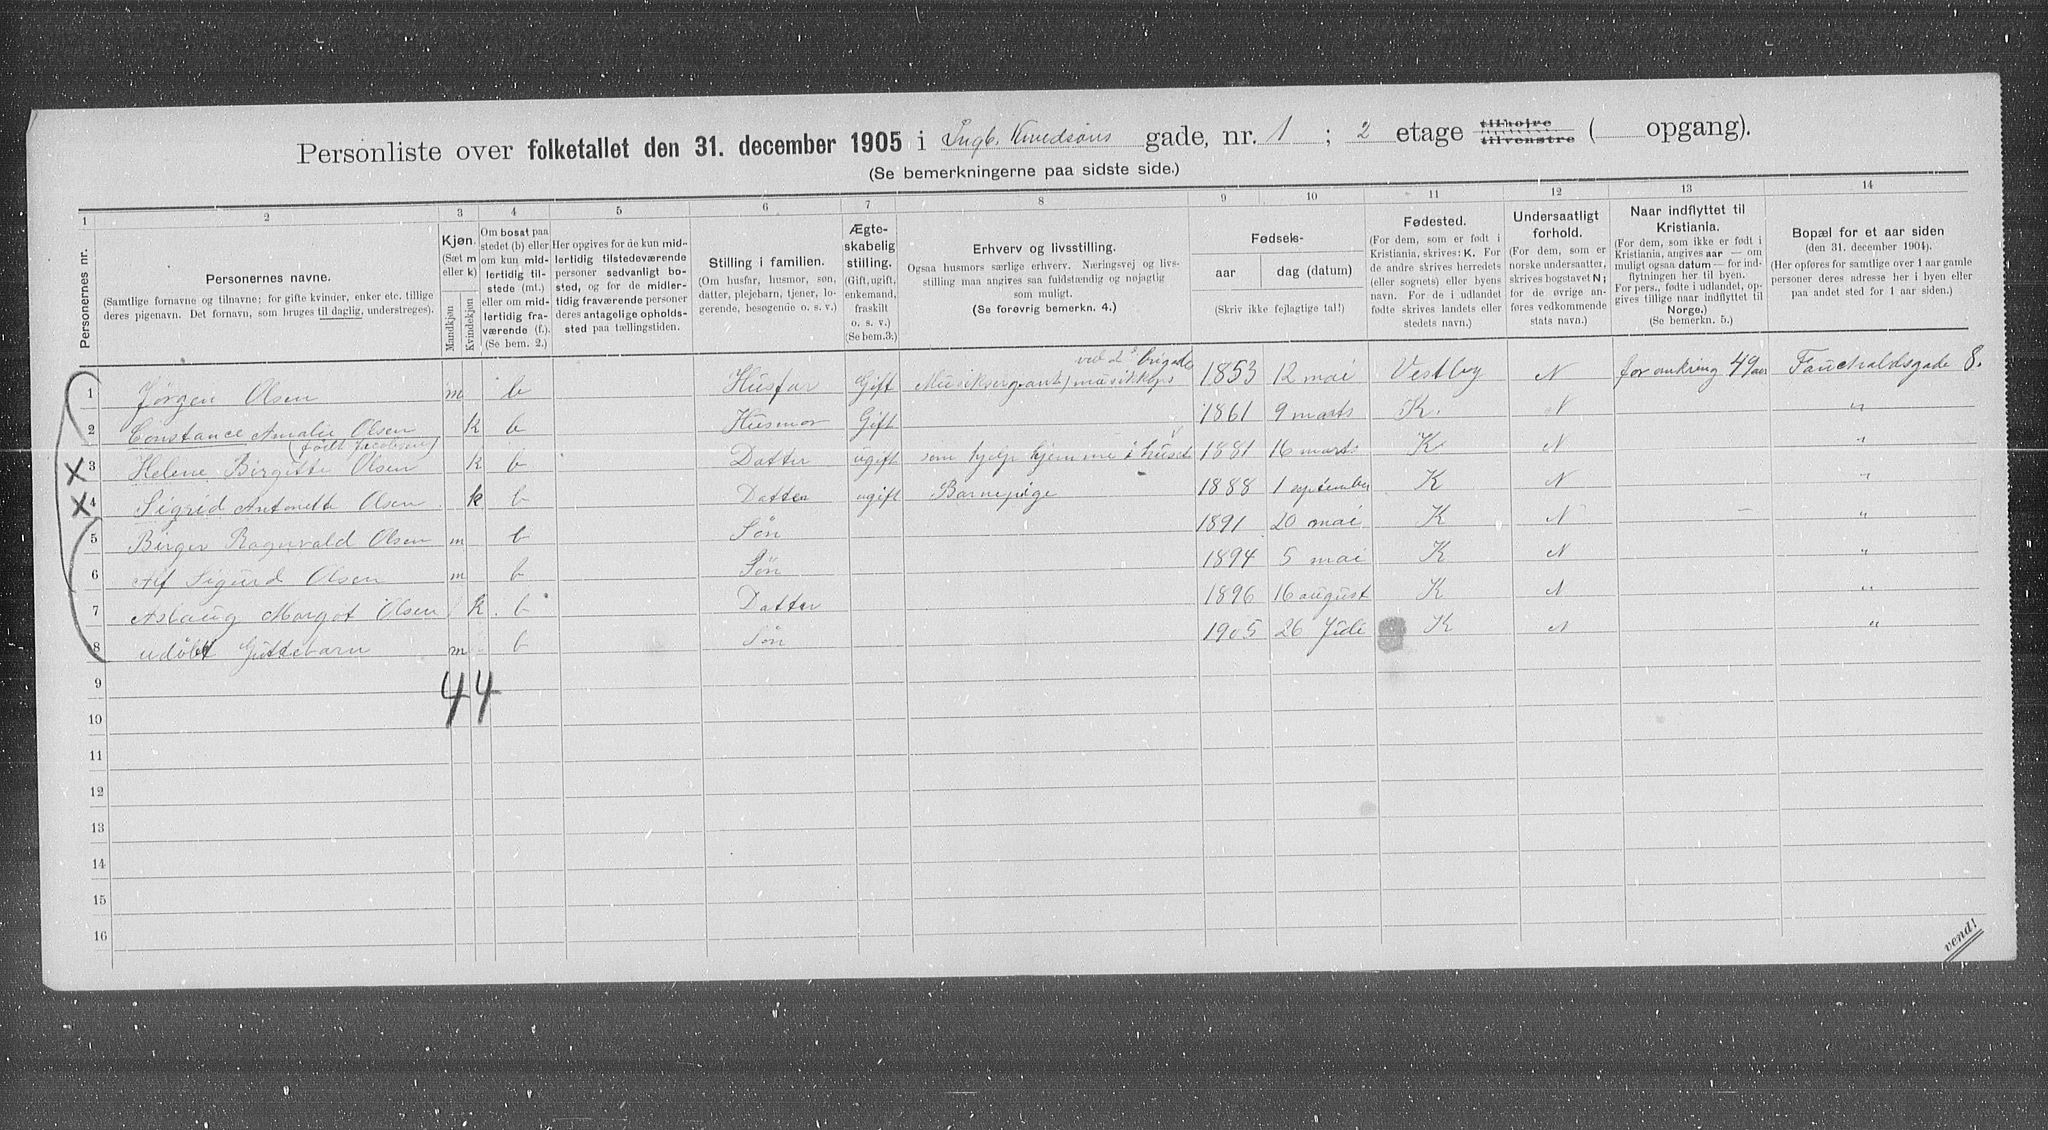 Personliste over folketallet den 31. december 1905 i Ingb. Knudsöns gade, nr. 1 ; 2 etage tilhøjre tilvenstre ( opgang).
(Se bemerkningerne paa sidste side.)
1 2 3 4 5 6 7 8 9 10 11 12 13 14
Personernes nr.
Personernes navne.
(Samtlige fornavne og tilnavne; for gifte kvinder, enker etc. tillige
deres pigenavn. Det fornavn, som bruges til daglig, understreges).
Kjøn.
(Sæt m
eller k)
Mandkjøn
Kvindekjøn
Om bosat paa
stedet (b) eller
om kun mid-
lertidig til-
stede (mt.)
eller om mid-
lertidig fra-
værende (f.).
(Se bem. 2.)
Her opgives for de kun mid-
lertidig tilstedeværende
personer sedvanligt bo-
sted, og for de midler-
tidig fraværende personer
deres antagelige opholds-
sted paa tællingstiden.
Stilling i familien.
(Om husfar, husmor, søn,
datter, plejebarn, tjener, lo-
gerende, besøgende o. s. v.)
Ægte-
skabelig
stilling.
(Gift, ugift,
enkemand,
fraskilt
o. s. v.)
(Se bem. 3.)
Erhverv og livsstilling.
Ogsaa husmors særlige erhverv. Næringsvej og livs-
stilling maa angives saa fuldstændig og nøjagtig
som muligt.
(Se forøvrig bemerkn. 4.)
Fødsels-
aar dag (datum)
(Skriv ikke fejlagtige tal!)
Fødested.
(For dem, som er født i
Kristiania, skrives: K. For
de andre skrives herredets
(eller sognets) eller byens
navn. For de i udlandet
fødte skrives landets eller
stedets navn.)
Undersaatligt
forhold.
(For dem, som er
norske undersaatter,
skrives bogstavet N;
for de øvrige an-
føres vedkommende
stats navn.)
Naar indflyttet til
Kristiania.
(For dem, som ikke er født i
Kristiania, angives aar — om
muligt ogsaa datum — for ind-
flytningen her til byen.
For pers., fødte i udlandet, op-
gives tillige naar indflyttet til
Norge.)
(Se bemerkn. 5.)
Bopæl for et aar siden
(den 31. december 1904).
(Her opføres for samtlige over 1 aar gamle
personer deres adresse her i byen eller
paa andet sted for 1 aar siden.)
ved 2 brigades
1 Jørgen Olsen m b Husfar Gift Musiksergeant, musikkorps 1853 12 mai Vestby N for omkring 49 aar Fauchaldsgade 8.
2 Constance Amalie Olsen k b Husmor Gift 1861 9 marts K. N "
(født Jacobsen)
3 Helene Birgitte Olsen k b Datter ugift som hjelp hjemme i huset 1881 16 marts K N "
4 Sigrid Antonette Olsen k b Datter ugift Barnepige 1888 1 september K N "
5 Birger Ragnvald Olsen m b Søn 1891 20 mai K N — "
6 Alf Sigurd Olsen m b Søn 1894 5 mai K N "
7 Aslaug Margot Olsen k b Datter 1896 16 august K N "
8 udøbt Guttebarn m b Søn 1905 26 Juli K N "
9
4 4
10
11
12
13
14
15
16
vend!